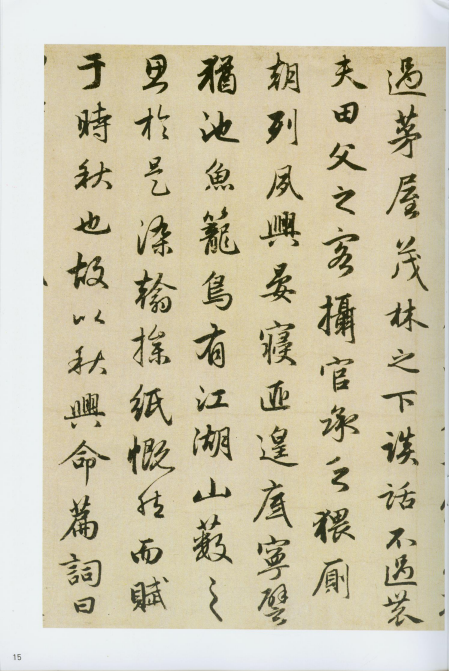 過茅屋茂林之下談話不過農
夫田父之客攝官承乏猥厠
朝列夙興晏寢匪遑底寧譬
猶池魚籠鳥有江湖山藪之
思於是染翰操紙慨然而賦
于時秋也故以秋興命篇詞曰
15